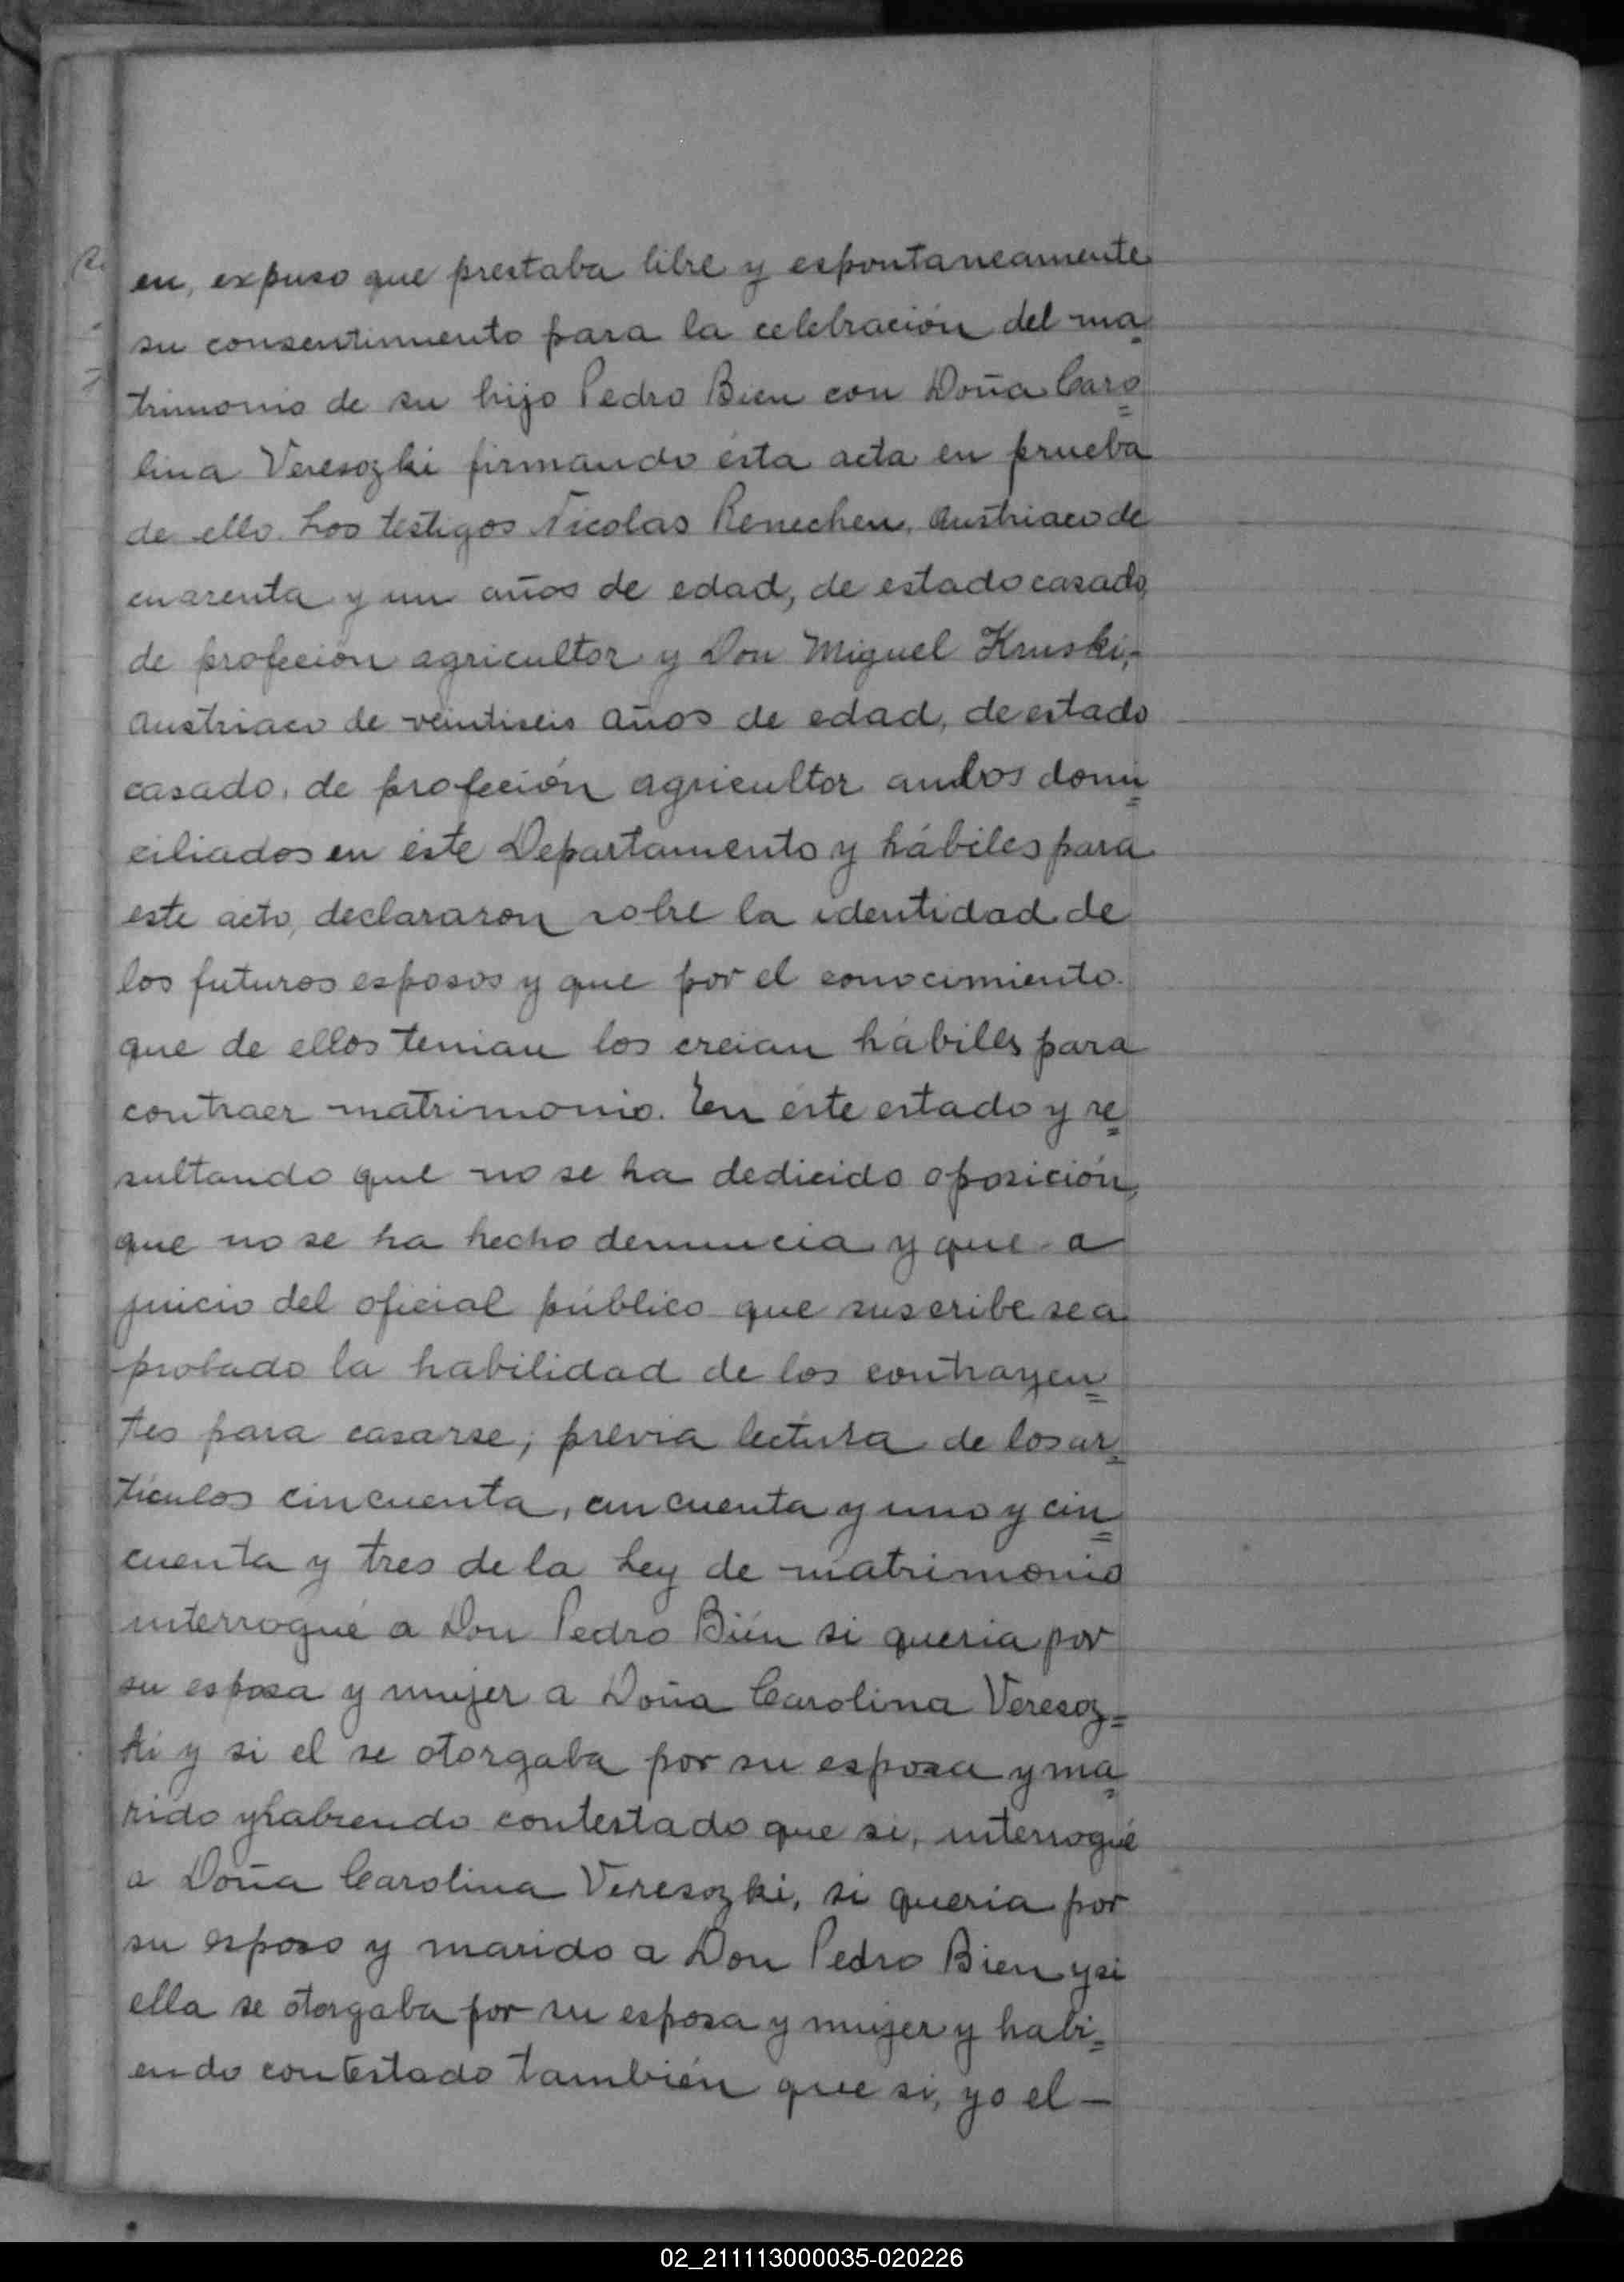 en, expuso que prestaba libre y espontaneamente
su consentimiento para la celebración del ma=
trimonio de su hijo Pedro Bien con Doña Caro=
linaVeresozki firmando ésta acta en prueba
de ello. Los testigos Nicolas Renechen, Austriaco de
cuarenta y un años de edad, de estado casado,
de profeción agricultor y Don Miguel Kruski,-
Austriaco de veintiseis años de edad, de estado
casado, de profeción agricultor ambos domi=
ciliados en éste Departamento y hábiles para
este acto, declararon sobre la identidad de
los futuros esposos y que por el conocimiento
que de ellos tenian los creian hábiles para
contraer matrimonio. En éste estado y re=
sultando que no se ha dedicido oposición,
que no se ha hecho denuncia y que a
juicio del oficial público que suscribe se a
probado la habilidad de los contrayen=
tes para casarse; previa lectura de los ar=
tículos cincuenta, cincuenta y uno y cin=
cuenta y tres de la Ley de matrimonio
interrogué a Don Pedro Bién si queria por
su esposa y mujer a Doña Carolina Veresoz=
ki y si el se otorgaba por su esposa y ma=
rido y habiendo contestado que si, interrogué
a Doña Carolina Veresozki, si queria por
su esposo y marido a Don Pedro Bien y si
ella se otorgaba por su esposa y mujer y habi=
endo contestado también que si, yo el -
02_211113000035-020226